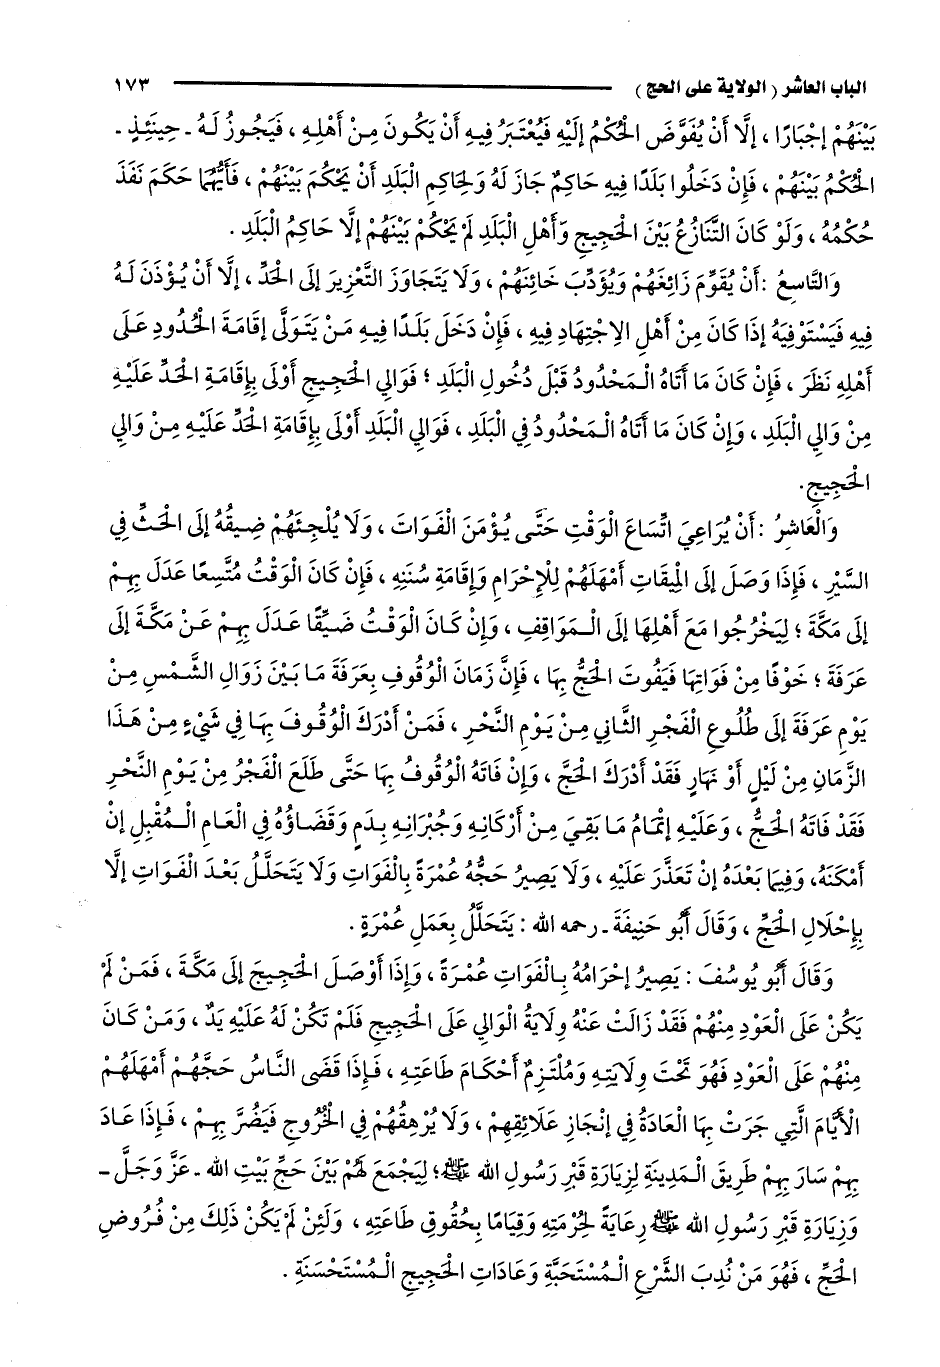 الباب العاشر ( الولاية على الحج ) ١٧٣
بَيْنَهُمْ إِجْبَارًا ، إِلَّا أَنْ يُفَوَّضَ الْحُكْمُ إِلَيْهِ فَيُعْتَبَرُ فِيهِ أَنْ يَكُونَ مِنْ أَهْلِهِ ، فَيَجُوزُ لَهُ ـ حِينَئِذٍ ـ
الْحُكْمُ بَيْنَهُمْ ، فَإِنْ دَخَلُوا بَلَدًا فِيهِ حَاكِمٌ جَازَ لَهُ وَلِحَاكِمِ الْبَلَدِ أَنْ يَحْكُمَ بَيْنَهُمْ ، فَأَيُّهُمَا حَكَمَ نَفَذَ
حُكْمُهُ ، وَلَوْ كَانَ التَّنَازُعُ بَيْنَ الْحَجِيجِ وَأَهْلِ الْبَلَدِ لَمْ يَحْكُمْ بَيْنَهُمْ إِلَّا حَاكِمُ الْبَلَدِ .
وَالتَّاسِعُ : أَنْ يُقَوِّمَ زَائِغَهُمْ وَيُؤَدِّبَ خَائِنَهُمْ ، وَلَا يَتَجَاوَزَ التَّعْزِيرَ إِلَى الْحَدِّ ، إِلَّا أَنْ يُؤْذَنَ لَهُ
فِيهِ فَيَسْتَوْفِيَهُ إِذَا كَانَ مِنْ أَهْلِ الِاجْتِهَادِ فِيهِ ، فَإِنْ دَخَلَ بَلَدًا فِيهِ مَنْ يَتَوَلَّى إِقَامَةَ الْحُدُودِ عَلَى
أَهْلِهِ نَظَرَ ، فَإِنْ كَانَ مَا أَتَاهُ الْمَحْدُودُ قَبْلَ دُخُولِ الْبَلَدِ ؛ فَوَالِي الْحَجِيجِ أَوْلَى بِإِقَامَةِ الْحَدِّ عَلَيْهِ
مِنْ وَالِي الْبَلَدِ ، وَإِنْ كَانَ مَا أَتَاهُ الْمَحْدُودُ فِي الْبَلَدِ ، فَوَالِي الْبَلَدِ أَوْلَى بِإِقَامَةِ الْحَدِّ عَلَيْهِ مِنْ وَالِي
الْحَجِيجِ .
وَالْعَاشِرُ : أَنْ يُرَاعِيَ اتِّسَاعَ الْوَقْتِ حَتَّى يُؤْمَنَ الْفَوَاتَ ، وَلَا يُلْجِئَهُمْ ضِيقُهُ إِلَى الْحَثِّ فِي
السَّيْرِ ، فَإِذَا وَصَلَ إِلَى الْمِيقَاتِ أَمْهَلَهُمْ لِلْإِحْرَامِ وَإِقَامَةِ سُنَنِهِ ، فَإِنْ كَانَ الْوَقْتُ مُتَّسِعًا عَدَلَ بِهِمْ
إِلَى مَكَّةَ ؛ لِيَخْرُجُوا مَعَ أَهْلِهَا إِلَى الْمَوَاقِفِ ، وَإِنْ كَانَ الْوَقْتُ ضَيِّقًا عَدَلَ بِهِمْ عَنْ مَكَّةَ إِلَى
عَرَفَةَ ؛ خَوْفًا مِنْ فَوَاتِهَا فَيَفُوتَ الْحَجُّ بِهَا ، فَإِنَّ زَمَانَ الْوُقُوفِ بِعَرَفَةَ مَا بَيْنَ زَوَالِ الشَّمْسِ مِنْ
يَوْمِ عَرَفَةَ إِلَى طُلُوعِ الْفَجْرِ الثَّانِي مِنْ يَوْمِ النَّحْرِ ، فَمَنْ أَدْرَكَ الْوُقُوفَ بِهَا فِي شَيْءٍ مِنْ هَذَا
الزَّمَانِ مِنْ لَيْلٍ أَوْ نَهَارٍ فَقَدْ أَدْرَكَ الْحَجَّ ، وَإِنْ فَاتَهُ الْوُقُوفُ بِهَا حَتَّى طَلَعَ الْفَجْرُ مِنْ يَوْمِ النَّحْرِ
فَقَدْ فَاتَهُ الْحَجُّ ، وَعَلَيْهِ إِتْمَامُ مَا بَقِيَ مِنْ أَرْكَانِهِ وَجُبْرَانِهِ بِدَمٍ وَقَضَاؤُهُ فِي الْعَامِ الْمُقْبِلِ إِنْ
أَمْكَنَهُ، وَفِيمَا بَعْدَهُ إِنْ تَعَذَّرَ عَلَيْهِ ، وَلَا يَصِيرُ حَجُّهُ عُمْرَةً بِالْفَوَاتِ وَلَا يَتَحَلَّلُ بَعْدَ الْفَوَاتِ إِلَّا
بِإِحْلَالِ الْحَجِّ ، وَقَالَ أَبُو حَنِيفَةَ ـ رحمه الله : يَتَحَلَّلُ بِعَمَلِ عُمْرَةٍ .
وَقَالَ أَبُو يُوسُفَ : يَصِيرُ إِحْرَامُهُ بِالْفَوَاتِ عُمْرَةً ، وَإِذَا أَوْصَلَ الْحَجِيجَ إِلَى مَكَّةَ ، فَمَنْ لَمْ
يَكُنْ عَلَى الْعَوْدِ مِنْهُمْ فَقَدْ زَالَتْ عَنْهُ وِلَايَةُ الْوَالِي عَلَى الْحَجِيجِ فَلَمْ تَكُنْ لَهُ عَلَيْهِ يَدٌ ، وَمَنْ كَانَ
مِنْهُمْ عَلَى الْعَوْدِ فَهُوَ تَحْتَ وِلَايَتِهِ وَمُلْتَزِمٌ أَحْكَامَ طَاعَتِهِ ، فَإِذَا قَضَى النَّاسُ حَجَّهُمْ أَمْهَلَهُمْ
الْأَيَّامَ الَّتِي جَرَتْ بِهَا الْعَادَةُ فِي إِنْجَازِ عَلَائِقِهِمْ ، وَلَا يُرْهِقُهُمْ فِي الْخُرُوجِ فَيَضُرَّ بِهِمْ ، فَإِذَا عَادَ
بِهِمْ سَارَ بِهِمْ طَرِيقَ الْمَدِينَةِ لِزِيَارَةِ قَبْرِ رَسُولِ الله ﷺ؛ لِيَجْمَعَ لَهُمْ بَيْنَ حَجِّ بَيْتِ الله ـ عَزَّ وَجَلَّ ـ
وَزِيَارَةِ قَبْرِ رَسُولِ الله ﷺ رِعَايَةً لِحُرْمَتِهِ وَقِيَامًا بِحُقُوقِ طَاعَتِهِ ، وَلَئِنْ لَمْ يَكُنْ ذَلِكَ مِنْ فُرُوضِ
الْحَجِّ ، فَهُوَ مَنْ نُدِبَ الشَّرْعِ الْمُسْتَحَبَّةِ وَعَادَاتِ الْحَجِيجِ الْمُسْتَحْسَنَةِ .